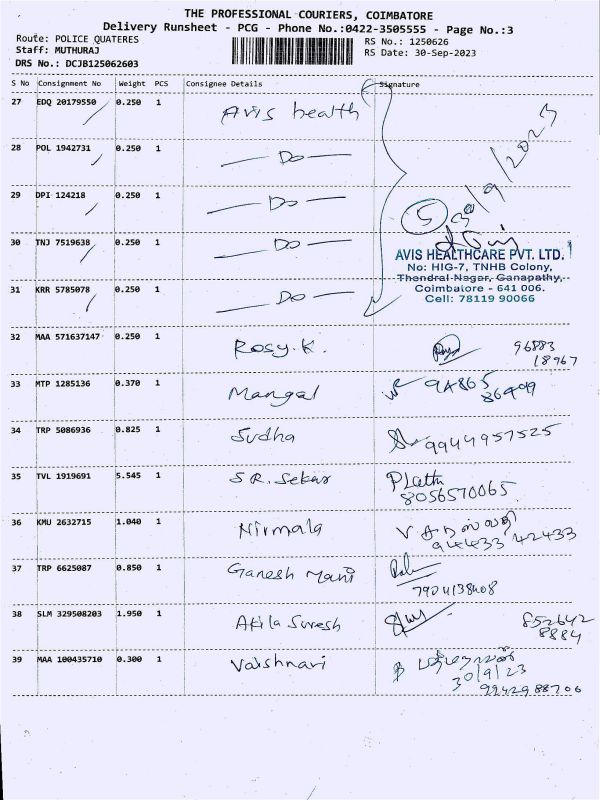 THE PROFESSIONAL COURIERS, COIMBATORE
Delivery Runsheet - PCG - Phone No.:0422-3505555 - Page No.:3
Route: POLICE QUATERES
RS No.: 1250626
Staff: MUTHURAJ
RS Date: 30-Sep-2023
DRS No.: DCJB125062603
S No Consignment No Weight PCS Consignee Details Signature
27 EDQ 20179550 0.250 1 Avis health
30/9/2023
28 POL 1942731 0.250 1 — Do —
29 DPI 124218 0.250 1 — Do —
5
30 TNJ 7519638 0.250 1 — Do —
AVIS HEALTHCARE PVT. LTD.
No: HIG-7, TNHB Colony,
Thendral Nagar, Ganapathy,
31 KRR 5785078 0.250 1 — Do —
Coimbatore - 641 006.
Cell: 78119 90066
32 MAA 571637147 0.250 1 Rosy.K. 96883
18967
33 MTP 1285136 0.370 1 Mangal 94865
86499
34 TRP 5086936 0.825 1 Sudha 9944957525
35 TVL 1919691 5.545 1 S R. Sekar
8056570065
36 KMU 2632715 1.040 1 Nirmala
94433 42433
37 TRP 6625087 0.850 1 Ganesh Mani
7904138408
38 SLM 329508203 1.950 1 Akila Suresh 852642
8884
39 MAA 100435710 0.300 1 Vaishnavi
30/9/23
9942988706